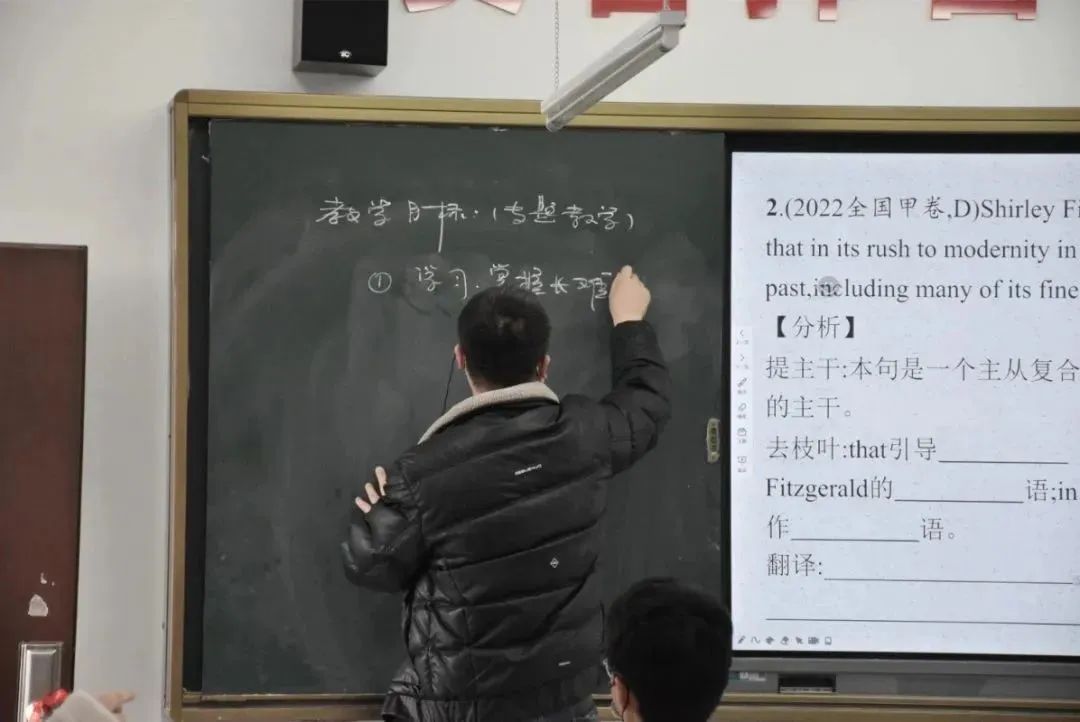 教学目标：(专题教学)
① 学习.掌握长难
2.(2022全国甲卷,D)Shirley Fi
that in its rush to modernity in
past,including many of its fine
【分析】
提主干:本句是一个主从复合
的主干。
去枝叶:that引导__________
Fitzgerald的__________语;in
作__________语。
翻译:__________